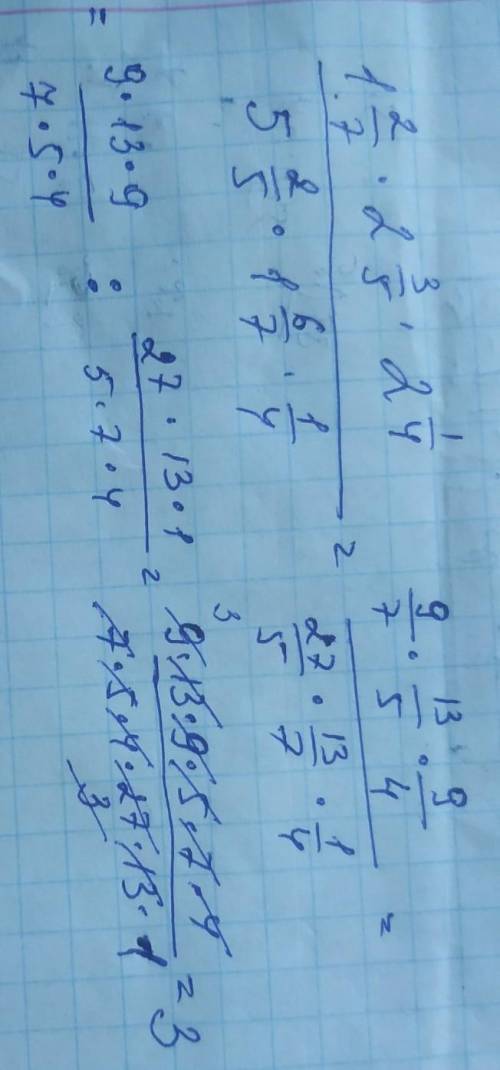 1 2/7 · 2 3/5 · 2 1/4 / 5 2/5 · 1 6/7 · 1/4 = 9/7 · 13/5 · 9/4 / 27/5 · 13/7 · 1/4 =
= 9·13·9 / 7·5·4 : 27·13·1 / 5·7·4 = 9·13·9·5·7·4 / 7·5·4·27·13·1 = 3
3
3